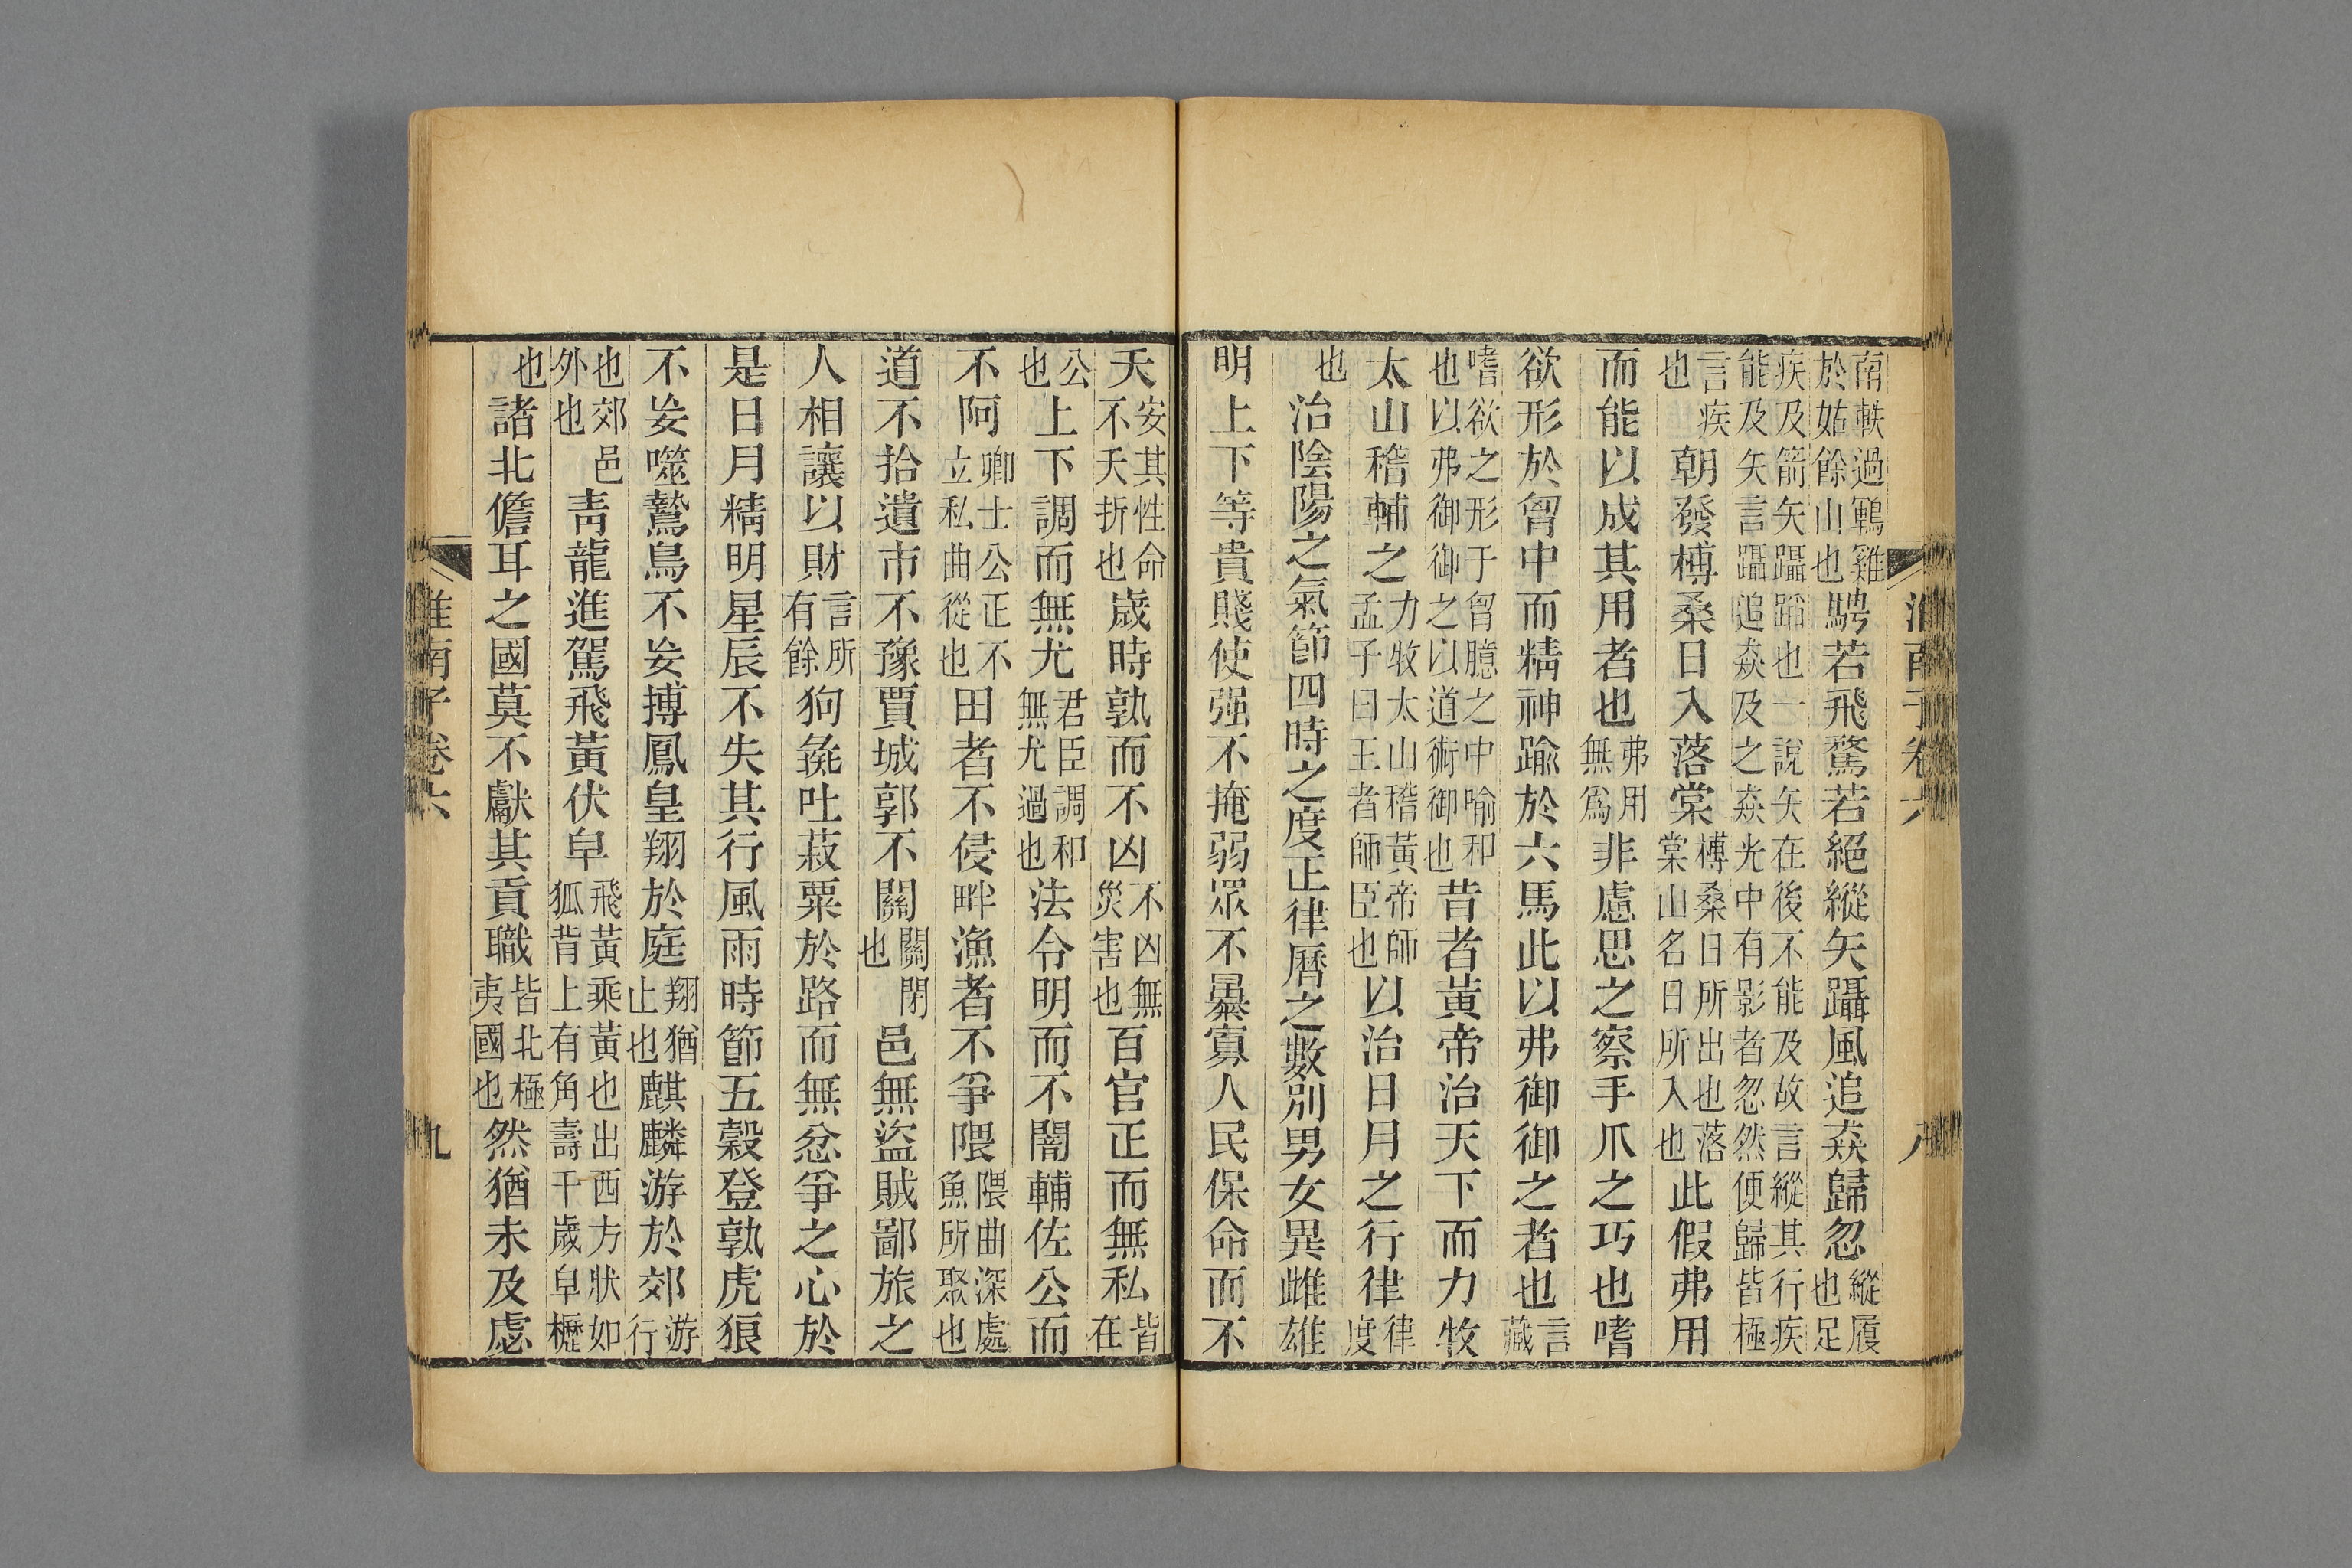 南軼過鶤雞於姑餘山也騁若飛騖若絕縱矢躡風追猋歸忽縱履也足
疾及箭矢躡蹈也一說矢在後不能及故言縱其行疾能及矢言躡追猋及之猋光中有影者忽然便歸皆極
言疾也朝發榑桑日入落棠榑桑日所出也落棠山名日所入也此假弗用
而能以成其用者也弗用無爲非慮思之察手爪之巧也嗜
欲形於胷中而精神踰於六馬此以弗御御之者也言藏
嗜欲之形于胷臆之中喻和也以弗御御之以道術御也昔者黃帝治天下而力牧
太山稽輔之力牧太山稽黃帝師孟子曰王者師臣也以治日月之行律律度
也治陰陽之氣節四時之度正律曆之數別男女異雌雄
明上下等貴賤使强不掩弱眾不暴寡人民保命而不
夭安其性命不夭折也歲時孰而不凶不凶無災害也百官正而無私皆在
公也上下調而無尤君臣調和無尤過也法令明而不闇輔佐公而
不阿卿士公正不立私曲從也田者不侵畔漁者不爭隈隈曲深處魚所聚也
道不拾遺市不豫賈城郭不關關閉也邑無盜賊鄙旅之
人相讓以財言所有餘狗彘吐菽粟於路而無忿爭之心於
是日月精明星辰不失其行風雨時節五穀登孰虎狼
不妄噬鷙鳥不妄搏鳳皇翔於庭翔猶止也麒麟游於郊游行
也郊邑外也靑龍進駕飛黃伏皁飛黃乘黃也出西方狀如狐背上有角壽千歲皁櫪
也諸北儋耳之國莫不獻其貢職皆北極夷國也然猶未及虙
淮南子卷六
九